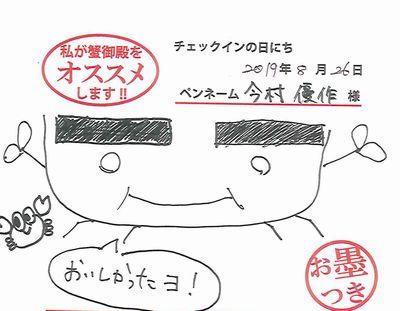 私が蟹御殿を
オススメ
します!!
チェックインの日にち
2019年8月26日
ペンネーム 今村 優作 様
おいしかったヨ!
お墨
つき